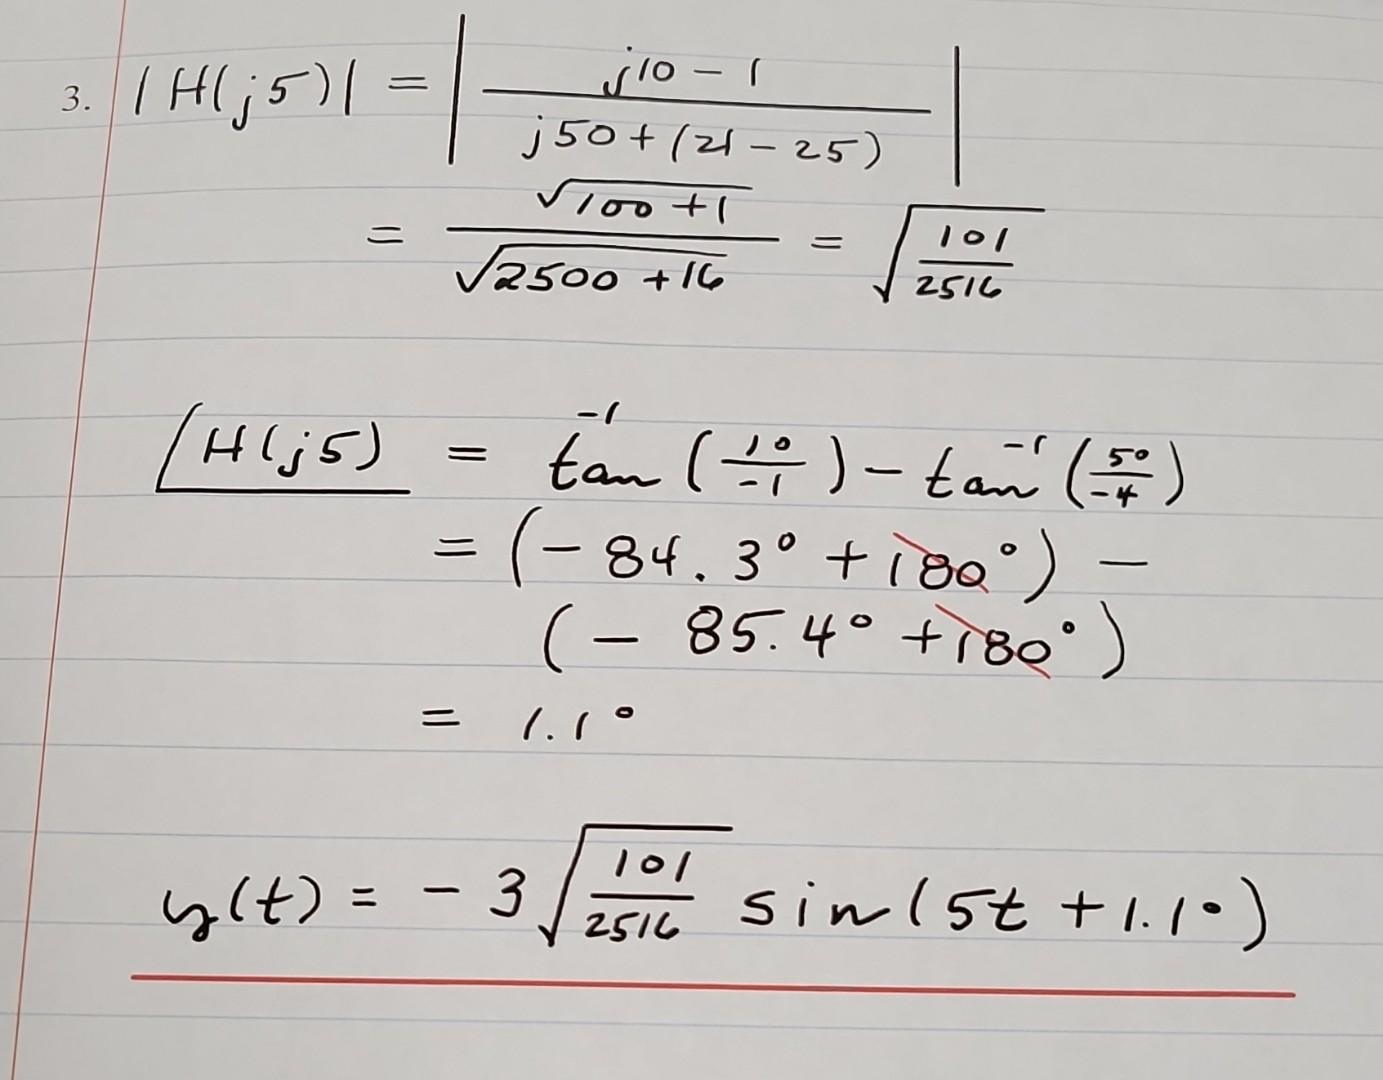 3. |H(j5)| = | (j10 - 1) / (j50 + (21 - 25)) |
= √(100 + 1) / √(2500 + 16) = √(101/2516)
∠H(j5) = tan⁻¹(10/-1) - tan⁻¹(50/-4)
= (-84.3° + 180°) -
(- 85.4° + 180°)
= 1.1°
y(t) = - 3 √(101/2516) sin(5t + 1.1°)